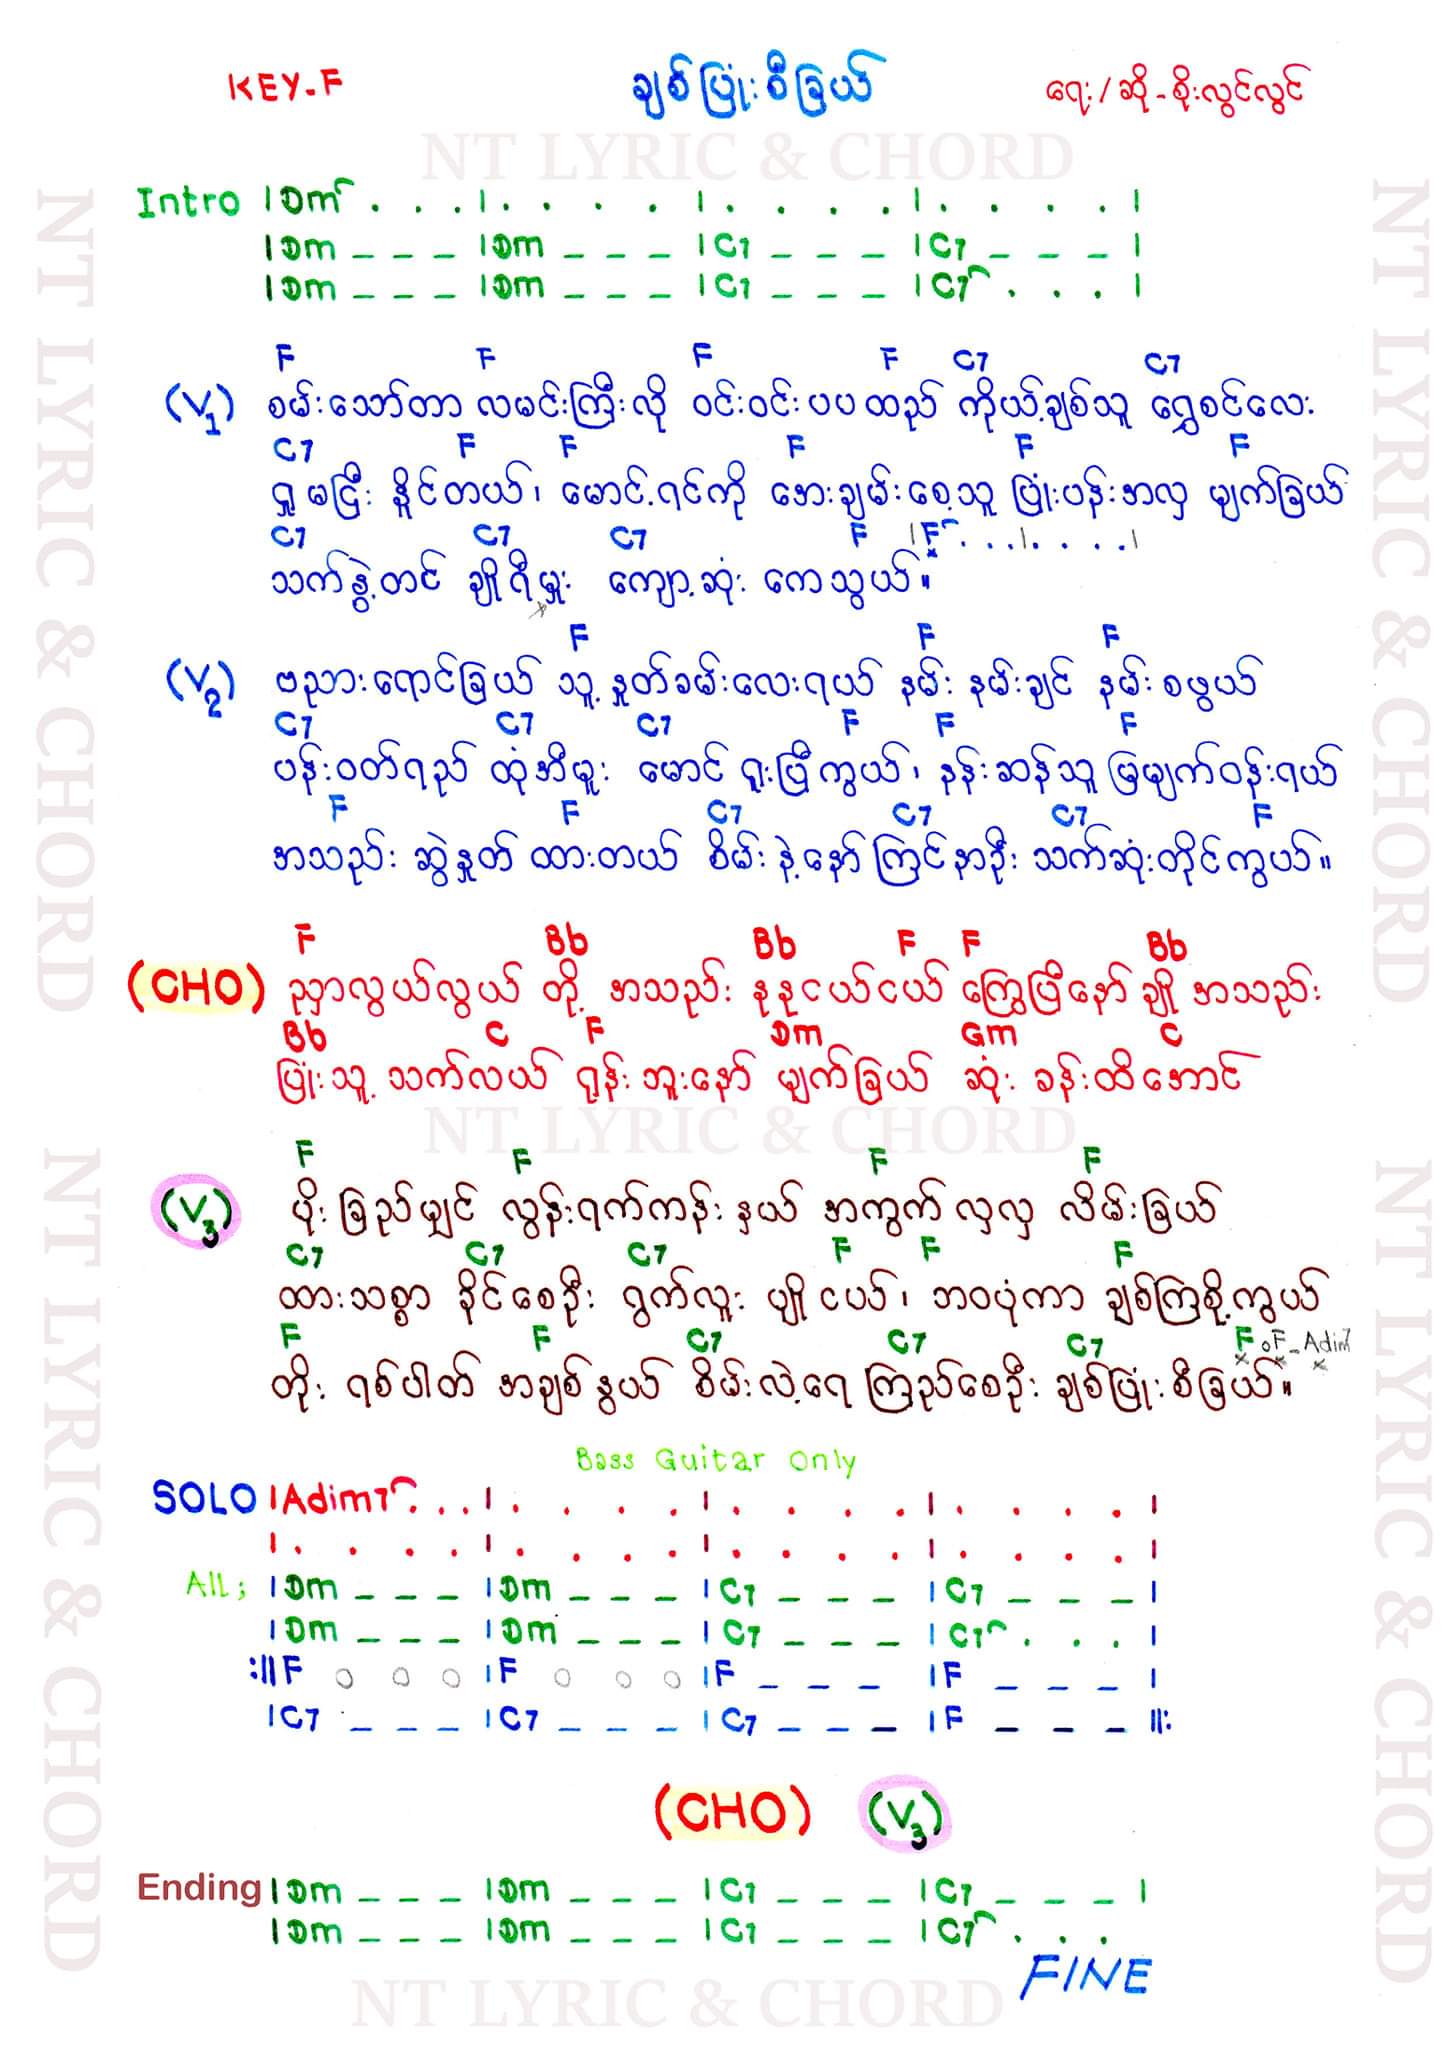 KEY-F ချစ်ပြုံးစီခြယ် ရေး/ဆို-စိုးလွင်လွင်
NT LYRIC & CHORD
Intro |Dm . . .|. . . .|. . . .|. . . .|
|Dm _ _ _ |Dm _ _ _ |C7 _ _ _ |C7 _ _ _ |
|Dm _ _ _ |Dm _ _ _ |C7 _ _ _ |C7 . . . |
F F F F C7 C7
(V1) စမ်းသော်တာ လမင်းကြီးလို ဝင်းဝင်းပပထည် ကိုယ့်ချစ်သူ ရွှေစင်လေး
C7 F F F F F
ရှုမငြီး နိူင်တယ်၊ မောင့်ရင်ကို အေးချမ်းစေ့သူ ပြုံးပန်းအလှ မျက်ခြယ်
C7 C7 C7 F |F . . .|. . . .|
သက်နွဲ့တင် ချိုရီမှူး ကျော့ဆုံး ကေသွယ်။
F F F
(V2) ဗညားရောင်ခြယ် သူ့နှုတ်ခမ်းလေးရယ် နမ်း နမ်းချင် နမ်းစဖွယ်
C7 C7 C7 F F F
ပန်းဝတ်ရည် ထုံအီမူး မောင် ရူးပြီကွယ်၊ နန်းဆန်သူ မြမျက်ဝန်းရယ်
F F C7 C7 C7 F
အသည်း ဆွဲနှုတ် ထားတယ် စိမ်းနဲ့နော် ကြင်နာဦး သက်ဆုံးတိုင်ကွယ်။
F Bb Bb F F Bb
(CHO) ညှာလွယ်လွယ် တို့ အသည်း နုနုငယ်ငယ် ကြွေပြီနော် ချို အသည်း
Bb C F Dm Gm C
ပြုံးသူ့ သက်လယ် ရုန်းဘူးနော် မျက်ခြယ် ဆုံး ခန်းထိအောင်
NT LYRIC & CHORD
F F F F
(V3) ပိုးခြည်မျှင် လွန်းရက်ကန်းနှယ် အကွက်လှလှ လိမ်းခြယ်
C7 C7 C7 F F F
ထားသစ္စာ ခိုင်စေဦး ရွက်လူး မျိုငယ်၊ ဘဝပုံကာ ချစ်ကြစို့ကွယ်
F F C7 C7 C7 F oF-Adim7
တိုး ရစ်ပါတ် အချစ်နွယ် စိမ်းလဲ့ရေ ကြည်စေဦး ချစ်ပြုံးစီခြယ်။
Bass Guitar Only
SOLO |Adim7 . . .|. . . .|. . . .|. . . .|
|. . . .|. . . .|. . . .|. . . .|
All; |Dm _ _ _ |Dm _ _ _ |C7 _ _ _ |C7 _ _ _ |
|Dm _ _ _ |Dm _ _ _ |C7 _ _ _ |C7 . . . |
:||F o o o |F o o o |F _ _ _ |F _ _ _ |
|C7 _ _ _ |C7 _ _ _ |C7 _ _ _ |F _ _ _ ||:
(CHO) (V3)
Ending |Dm _ _ _ |Dm _ _ _ |C7 _ _ _ |C7 _ _ _ |
|Dm _ _ _ |Dm _ _ _ |C7 _ _ _ |C7 . . .
FINE
NT LYRIC & CHORD
NT LYRIC & CHORD
NT LYRIC & CHORD
NT LYRIC & CHORD
NT LYRIC & CHORD